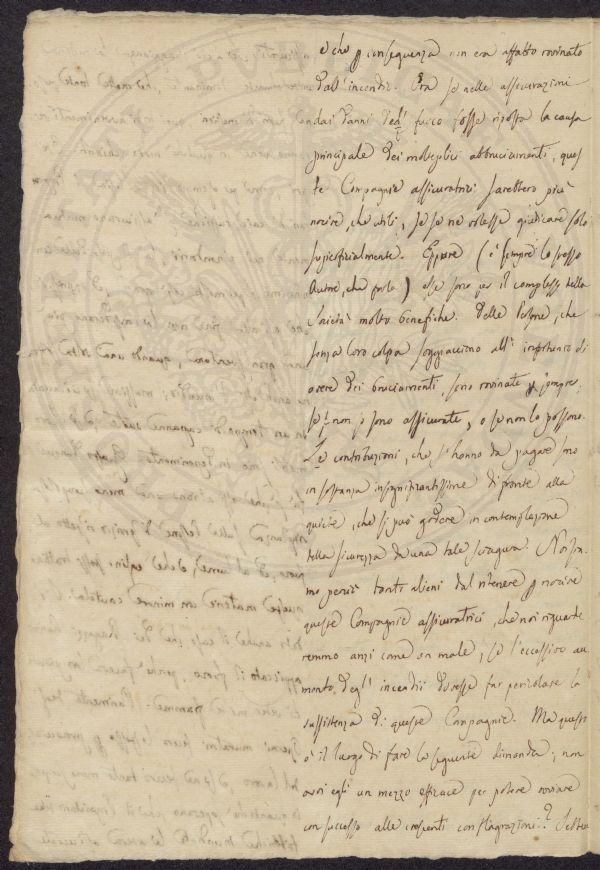 e che p conseguenza non era affatto rovinato
dall'incendio. Ora se nelle assicurazioni
dai danni del fuoco fosse riposta la causa
principale dei molteplici abbruciamenti, ques
te Compagnie assicuratrici sarebbero più
nocive, che utili, se se ne volesse giudicare solo
superficialmente. Eppure (è sempre lo stesso
Autore, che parla) esse sono per il complesso della
Società molto benefiche. Delle Persone, che
senza loro colpa soggiacciono all'
avere dei bruciamenti, sono rovinate p sempre,
se non si sono assicurate, o se non lo possono.
Le contribuzioni, che s'hanno da pagare sono
in sostanza insignificantissime di fronte alla
quiete, che si può godere in contemplazione
della sicurezza da una tale sciagura. Noi sia
mo perciò tanti alieni dal ritenere p nocive
queste Compagnie assicuratrici, che noi riguarde
remmo anzi come un male, se l'eccessivo au
mento degl'incendii dovesse far pericolare la
sussistenza di queste Compagnie. Ma questo
è il luogo di fare la seguente dimanda: non
avvi egli un mezzo efficace per potere ovviare
con successo alle crescenti conflagrazioni?